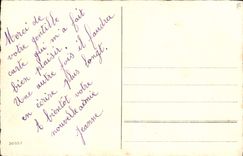 Merci de
votre gentille
carte qui m'a fait
bien plaisir.
Une autre fois il faudra
en écrire plus longt.
A bientôt votre
nouvelle amie
Jeanne